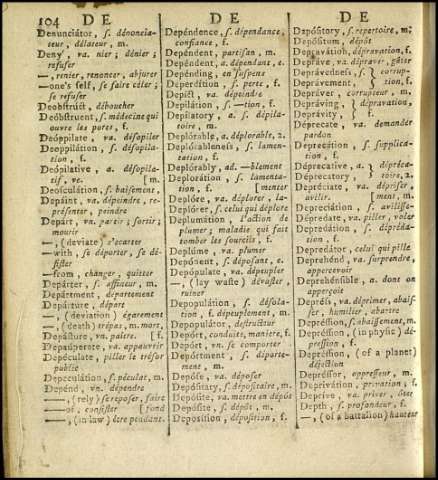 104 D E
D E
D E
Denunciátor, s. dénoncia-
teur, délateur, m.
Deny, va. nier; dénier;
refuser
—, renier, renoncer, abjurer
—one's self, se faire céler;
se refuser
Deobstrúct, déboucher
Deóbstruent, s. médecine qui
ouvre les pores, f.
Deóppilate, va. désopiler
Deoppilátion, s. désopila-
tion, f.
Deópilative, a. désopila-
tif, ve. [m.
Deosculátion, s. baisement,
Depáint, va. dépeindre, re-
présenter, peindre
Depárt, va. partir; sortir;
mourir
—, (deviate) s'écarter
—with, se départer, se dé-
sister
—from, changer, quitter
Depárter, s. affineur, m.
Depártment, département
Depárture, départ
—, (deviation) égarement
—, (death) trépas, m. mort,
Depásture, vn. paitre. [f.
Depáuperate, va. appauvrir
Depéculate, piller le trésor
public
Depeculátion, s. péculat, m.
Depénd, vn. dépendre
—, (rely) se reposer, faire
—of, consister [fond
—, (in law) être pendant.
Depéndence, s. dépendance,
confiance, f.
Depéndent, partisan, m.
Depéndent, a. dépendant, e.
Depénding, en suspens
Deperdítion, s. perte, f.
Depíct, va. dépeindre
Depilátion, s. —tion, f.
Depílatory, a. s. dépila-
toire, m.
Deplórable, a. déplorable, 2.
Deplórableness, s. lamen-
tation, f.
Deplórably, ad. —blement
Deplorátion, s. lamenta-
tion, f. [menter
Deplóre, va. déplorer, la-
Deplórer, s. celui qui déplore
Deplumátion, s. l'action de
plumer; maladie qui fait
tomber les sourcils, f.
Deplúme, va. plumer
Depónent, s. déposant, e.
Depópulate, va. dépeupler
—, (lay waste) dévaster,
ruiner
Depopulátion, s. désola-
tion, f. dépeuplement, m.
Depopulátor, destructeur
Depórt, conduite, maniere, f.
Depórt, vn. se comporter
Depórtment, s. déporte-
ment, m.
Depóse, va. déposer
Depósitary, s. dépositaire, m.
Depósite, va. mettre en dépôt
Depósite, s. dépôt, m.
Deposítion, s. déposition, f.
Depósitory, s. repertoire, m.
Depósitum, dépôt
Depravátion, dépravation, f.
Depráve, va. dépraver, gâter
Deprávedness, s. } corrup-
Deprávement, } tion, f.
Depráver, corrupteur, m.
Depráving, dépravation,
Deprávity, f.
Déprecate, va. demander
pardon
Deprecátion, s. supplica-
tion, f.
Déprecative, a. } dépréca-
Déprecatory, } toire, 2.
Depréciate, va. dépriser,
avilir. [ment, m.
Depreciátion, s. avilisse-
Dépredate, va. piller, voler
Depredátion, s. dépréda-
tion, f.
Depredátor, celui qui pille
Deprehénd, va. surprendre,
appercevoir
Deprehénsible, a. dont on
apperçoit
Depréss, va. déprimer, abais-
ser, humilier, abattre
Depréssion, s. abaissement, m.
Depréssion, (in physic) dé-
pression, f.
Depréssion, (of a planet)
déjection
Depréssor, oppresseur, m.
Deprivátion, privation, f.
Depríve, va. priver, ôter
Depth, s. profondeur, f.
—, (of a battalion) hauteur